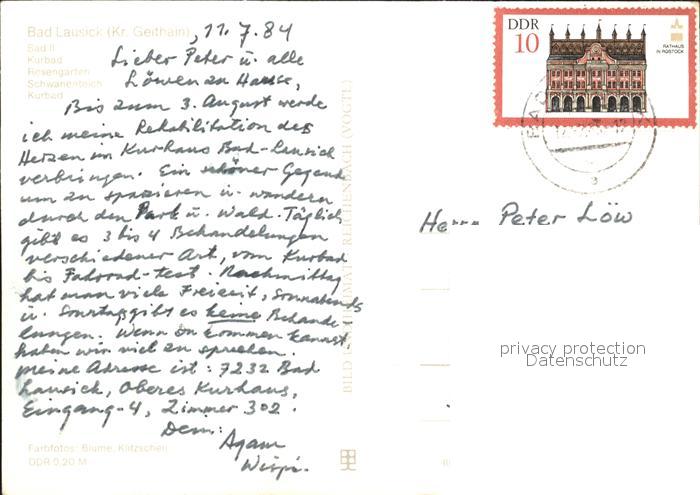 Bad Lausick (Kr. Geithain)
Bad II
Kurbad
Rosengarten
Schwanenteich
Kurbad
11.7.84
Lieber Peter u. alle
Löwen zu Hause,
Bis zum 3. August werde
ich meine Rehabilitation des
Herzen im Kurhaus Bad-Lausick
verbringen. Ein schöner Gegend
um zu spazieren u. wandern
durch den Park u. Wald. Täglich
gibt es 3 bis 4 Behandelungen
verschiedener Art, vom Kurbad
bis Fahrrad-test. Nachmittag
hat man viele Freizeit, Sonnabends
u. Sonntags gibt es keine Behande
lungen. Wenn Du kommen kannst,
haben wir viel zu sprechen.
meine Adresse ist: 7232 Bad
Lausick, Oberes Kurhaus,
Eingang-4, Zimmer 302.
Dein:
Farbfotos: Blume, Klitzschen
DDR 0,20 M
BILD UND HEIMAT REICHENBACH (VOGTL)
DDR
10
RATHAUS
IN ROSTOCK
Herrn Peter Löw
privacy protection
Datenschutz